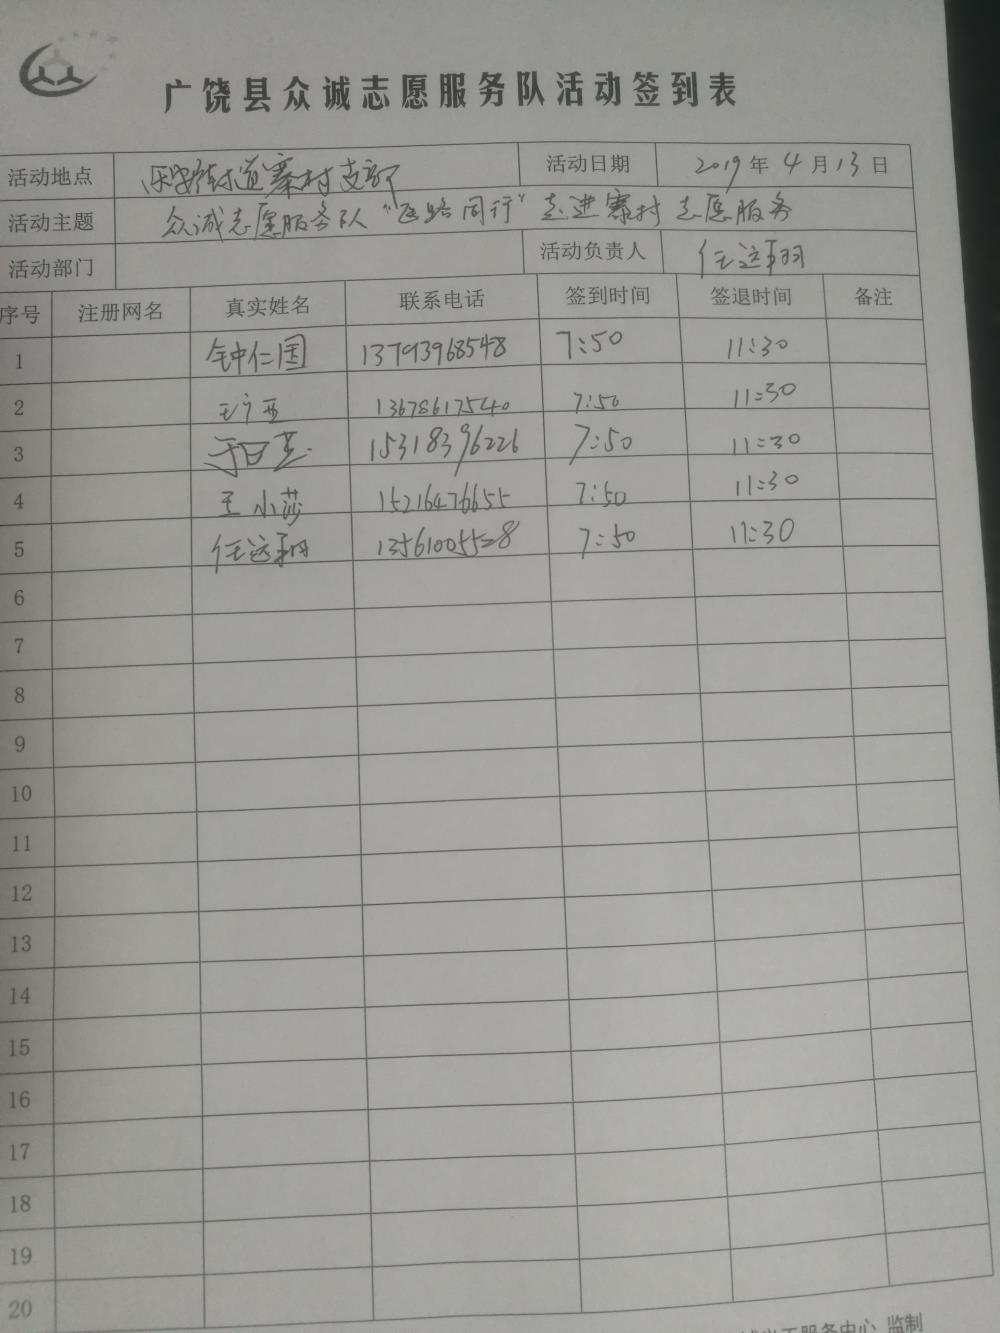 广饶县众诚志愿服务队活动签到表
活动地点 乐安街道寨村支部 活动日期 2019年4月13日
活动主题 众诚志愿服务队“医路同行”走进寨村志愿服务
活动部门 活动负责人 任远翔
序号 注册网名 真实姓名 联系电话 签到时间 签退时间 备注
1 钟仁国 13793968548 7:50 11:30
2 13678617540 7:50 11:30
3 15318396226 7:50 11:30
4 王小莎 15216476655 7:50 11:30
5 任远翔 13561005528 7:50 11:30
6
7
8
9
10
11
12
13
14
15
16
17
18
19
20
服务中心 监制